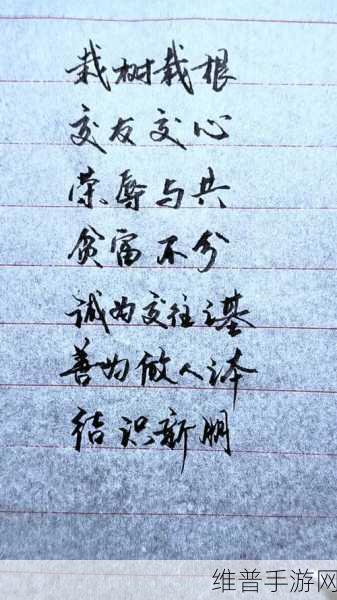 栽树栽根
交友交心
荣辱与共
贫富不分
诚为交往之基
善为做人之本
结识新朋
维普手游网